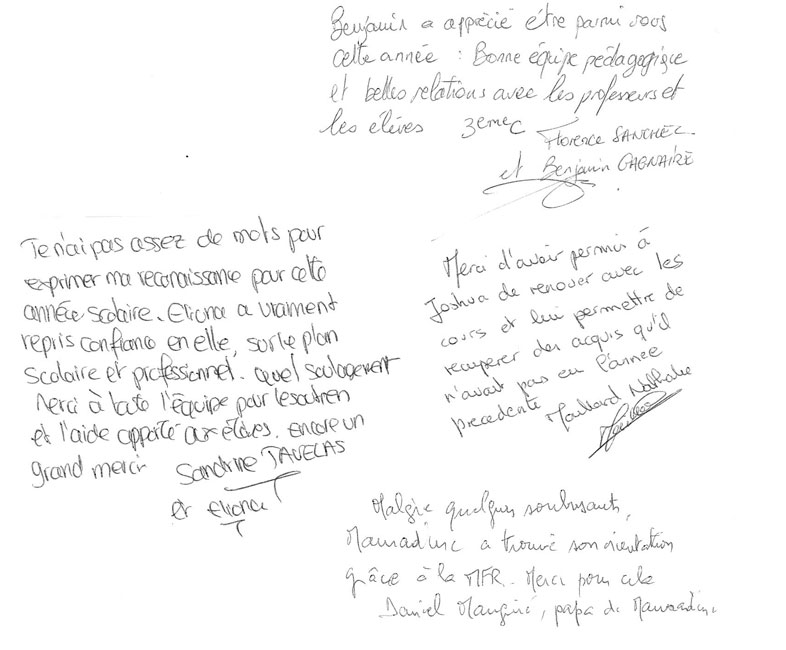 Benjamin a apprécié être parmi vous
cette année : Bonne équipe pédagogique
et belles relations avec les professeurs et
les élèves 3emeC Florence SANCHEZ.
et Benjamin GAGNAIRE.
Je n'ai pas assez de mots pour
exprimer ma reconaissance pour cette
année scolaire. Eliona a vraiment
repris confiance en elle, sur le plan
scolaire et professionnel. Quel soulagement
Merci à toute l'équipe pour le soutien
et l'aide apporté aux élèves. encore un
grand merci Sandrine TAVELAS
et Eliona
Merci d'avoir permis à
Joshua de renouer avec les
cours et lui permettre de
récuperer des acquis qu'il
n'avait pas eu l'année
precedente Maillard Nathalie
Malgré quelques
a trouvé son orientation
grâce à la MFR. Merci pour cela
Daniel papa de